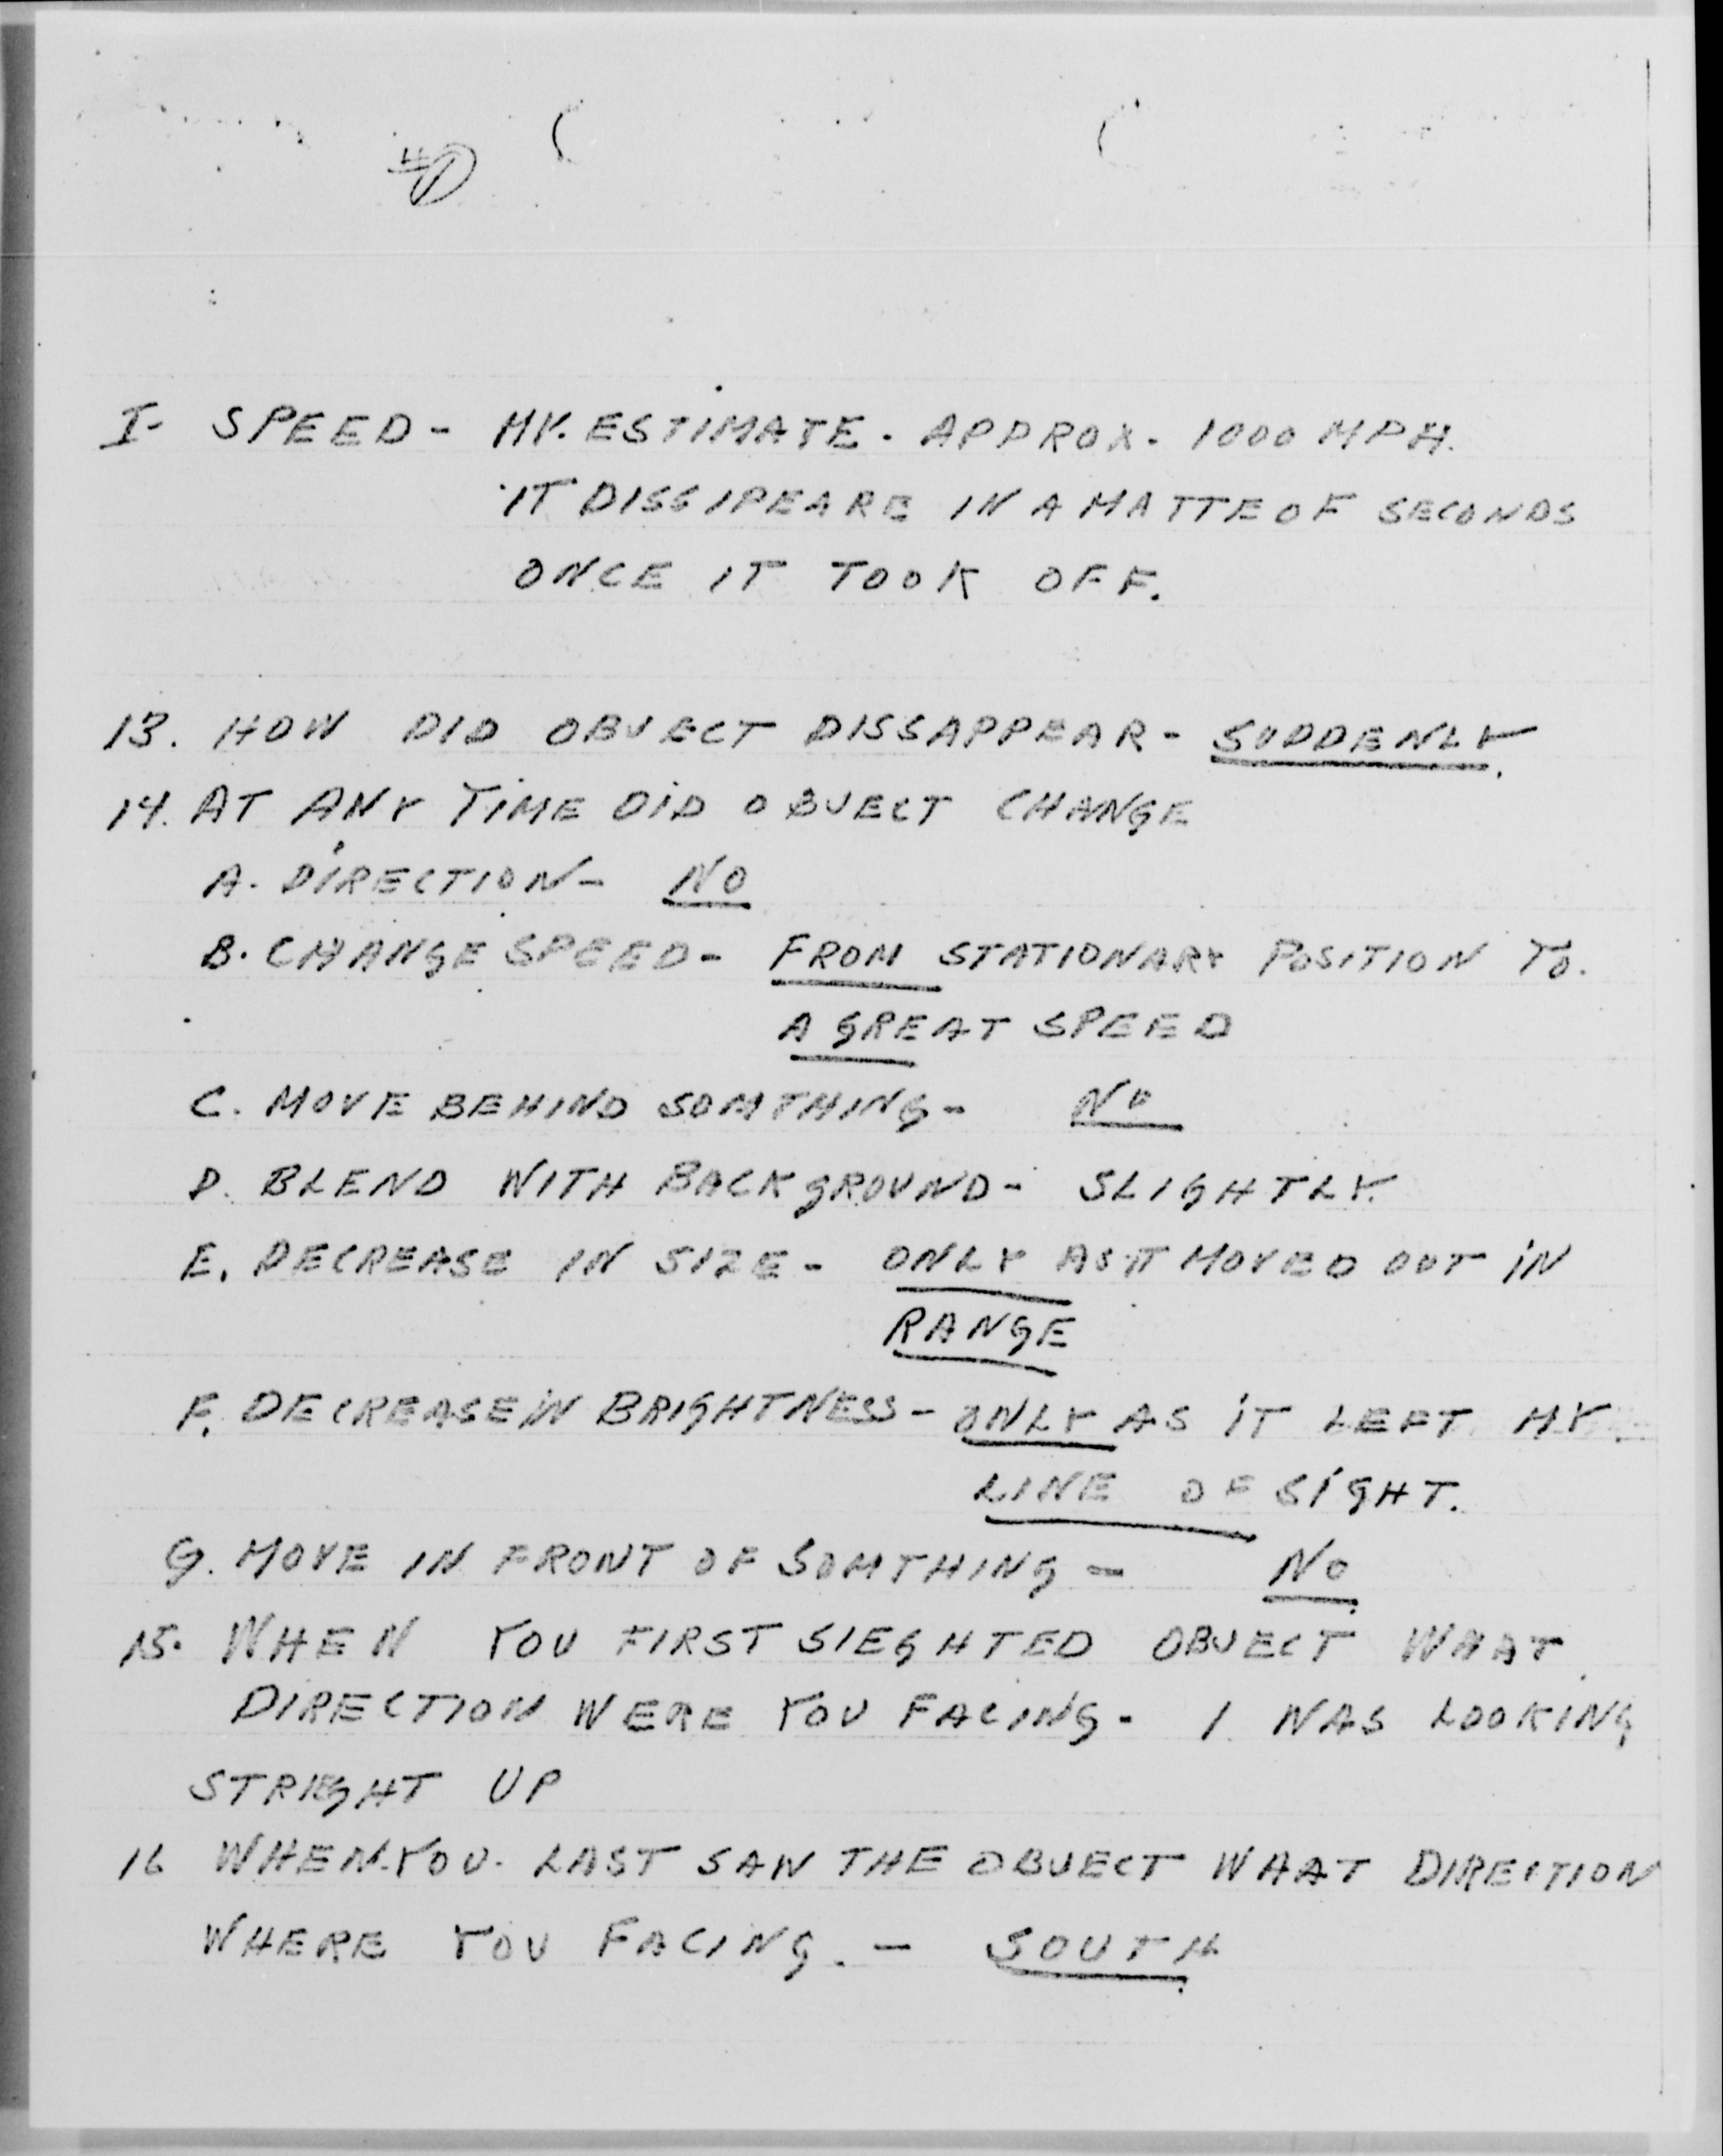 I- SPEED- MY. ESTIMATE. APPROX. 1000 MPH.
IT DISSIPEARE IN A MATTE OF SECONDS
ONCE IT TOOK OFF.
13. HOW DID OBJECT DISSAPPEAR- SUDDENLY.
14. AT ANY TIME DID OBJECT CHANGE
A. DIRECTION- NO
B. CHANGE SPEED- FROM STATIONARY POSITION TO.
A GREAT SPEED
C. MOVE BEHIND SOMTHING- NO
D. BLEND WITH BACKGROUND- SLIGHTLY.
E. DECREASE IN SIZE- ONLY AS IT MOVED OUT IN
RANGE
F. DECREASE IN BRIGHTNESS- ONLY AS IT LEFT MY
LINE OF SIGHT.
G. MOVE IN FRONT OF SOMTHING- NO
15. WHEN YOU FIRST SIEGHTED OBJECT WHAT
DIRECTION WERE YOU FACING- I WAS LOOKING
STRIEGHT UP
16 WHEN-YOU- LAST SAW THE OBJECT WHAT DIRECTION
WHERE YOU FACING.- SOUTH